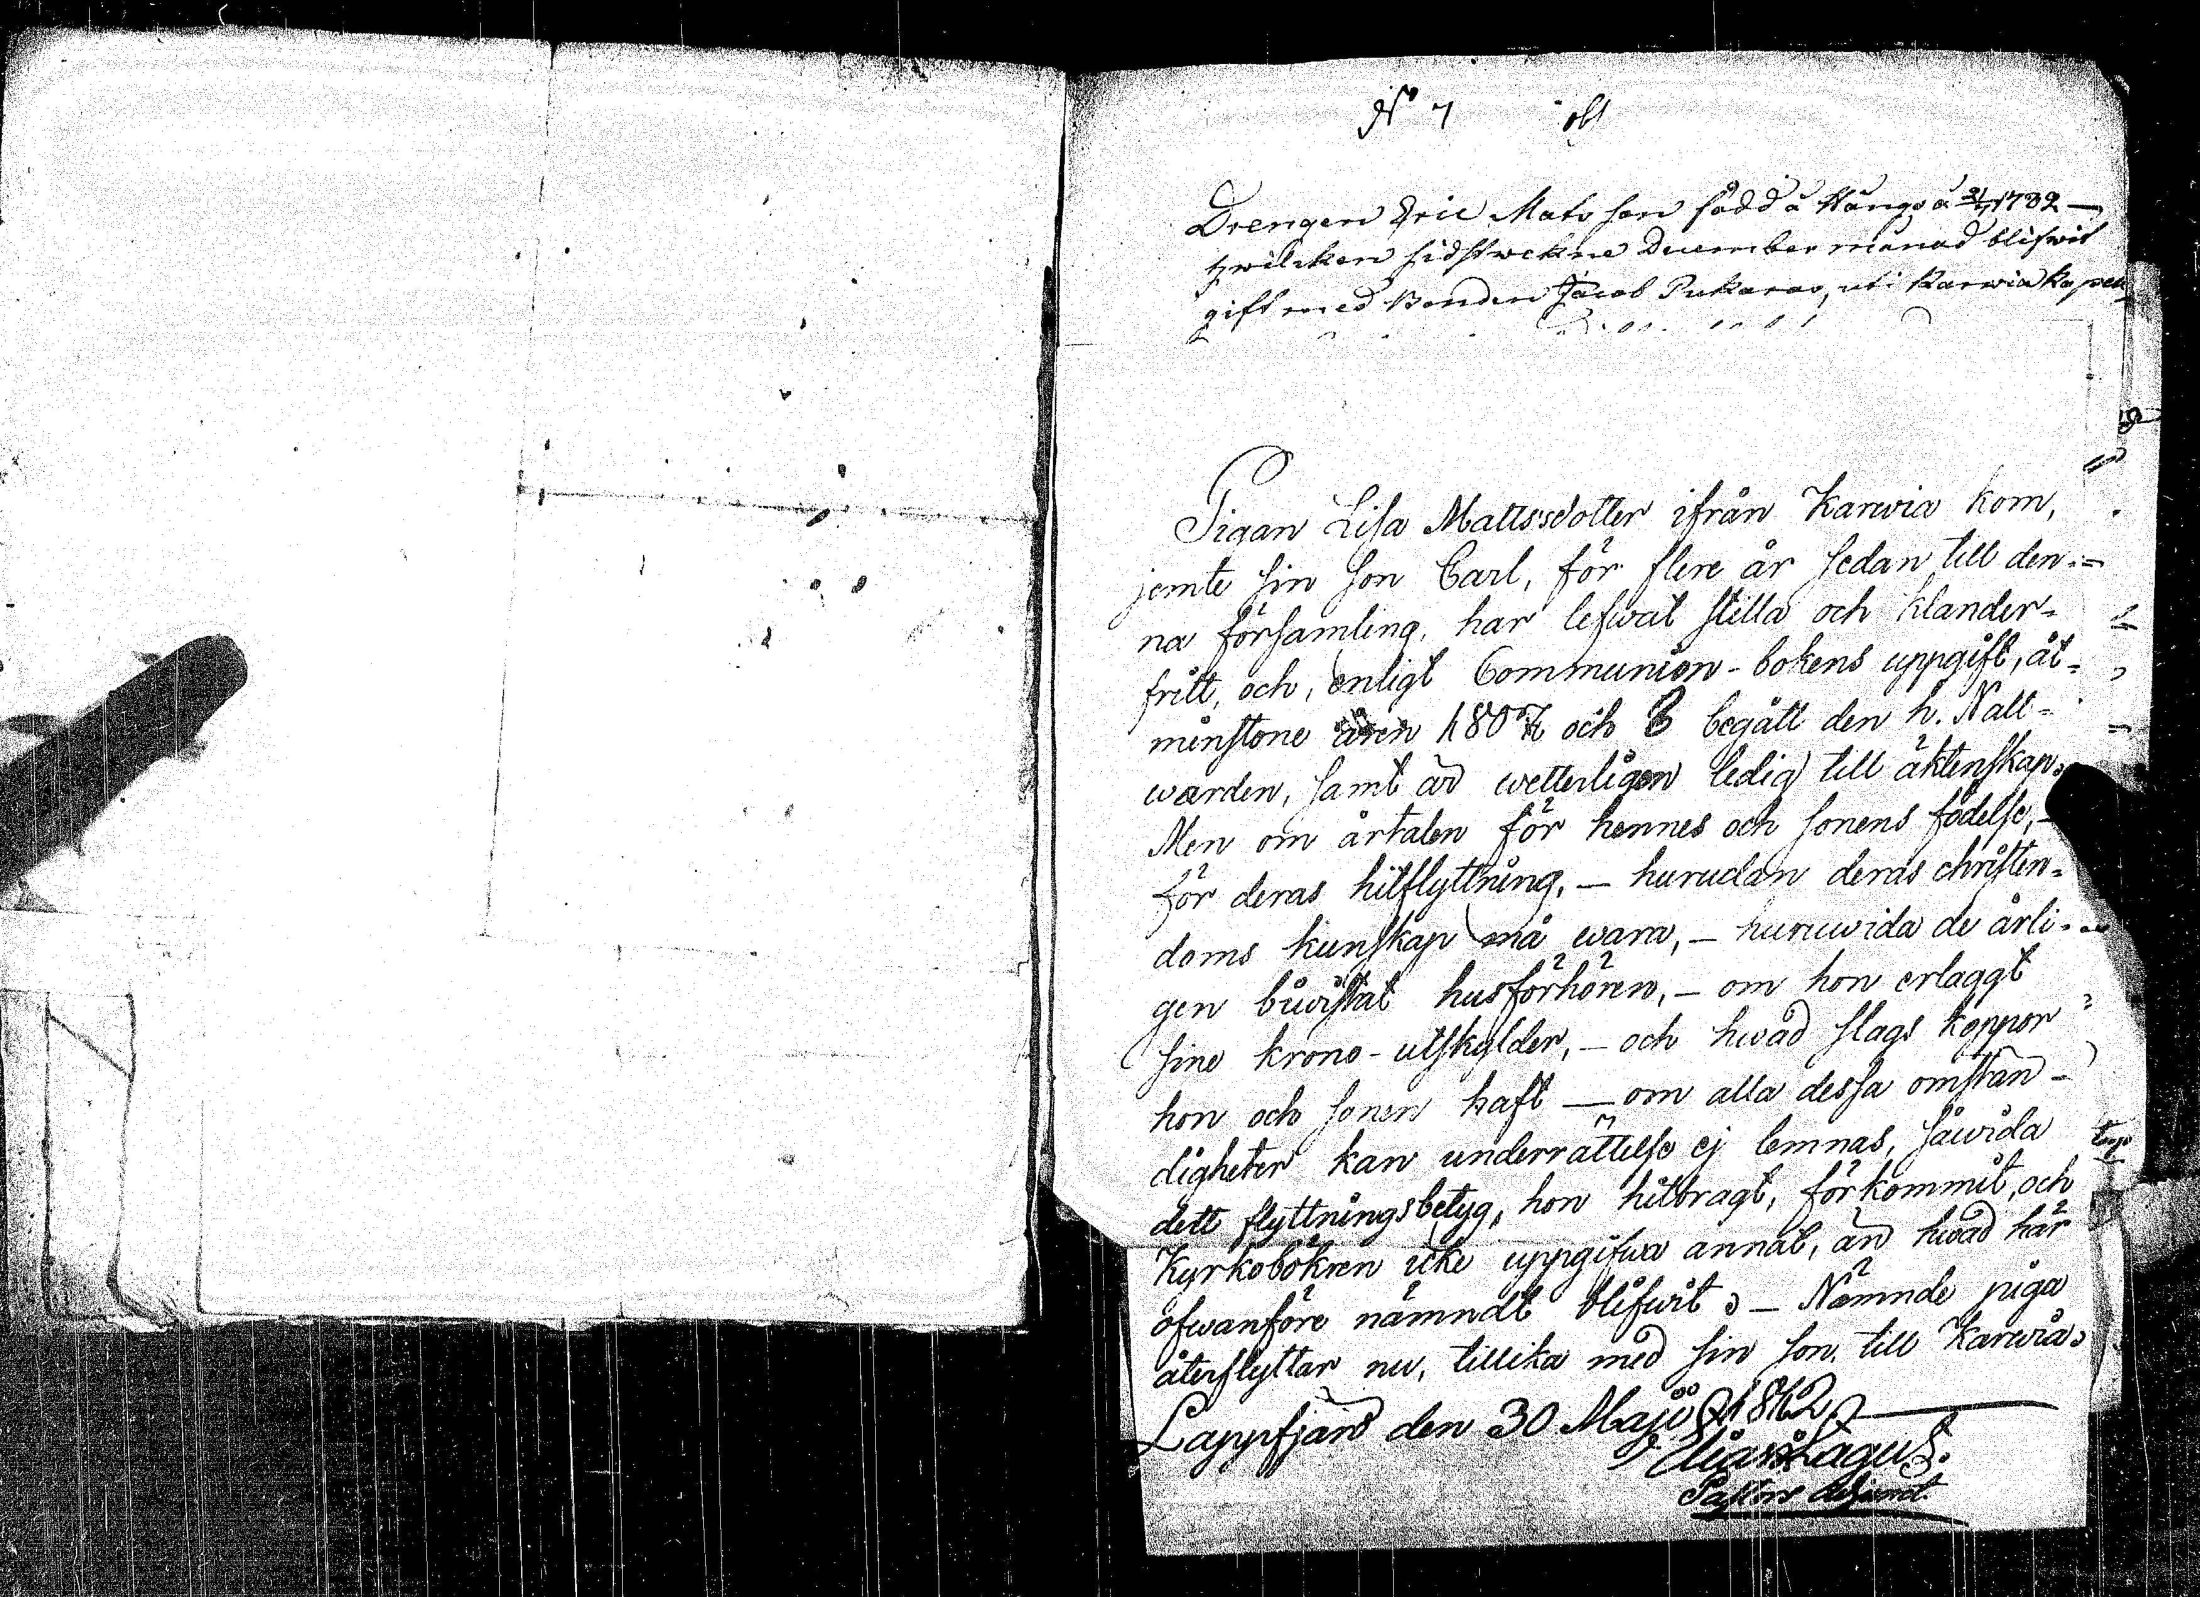 No 7
Drengen Eric Mats son född å Kångo å 1782 —
hwilcken sidstwekne December månad blifwit
gift med Bonden Jacob Pukaras, uti Karwia kapell
Pigan Lisa Mattsdotter ifrån Karwia kom,
jemte sin son Carl, för flere år sedan till den-
na församling, har lefwat stilla och klander-
fritt, och, enligt Communion-bokens uppgift, åt-
minstone åren 1807 och 8 begått den h. Natt-
warden, samt är wetterligen ledig till äktenskap.
Men om årtalen för hennes och sonens födelse, —
för deras hitflyttning, — hurudan deras christen-
doms kunskap må wara, — huruwida de årli-
gen biwistat husförhören, — om hon erlaggt
sine krono-utskylder, — och hwad slags koppor
hon och sonen haft — om alla dessa omstän-
digheter kan underrättelse ej lemnas, såwida
dett flyttningsbetyg, hon hitbragt, förkommit, och
Kyrkoböken icke uppgifwa annat, än hwad här
ofwanföre nämndt blifwit. — Nämnde piga
återflyttar nu, tillika med sin son, till Karwia.
Lappfjärd den 30 Maji 1812
Elias Lagus.
Pastors Adjunct.